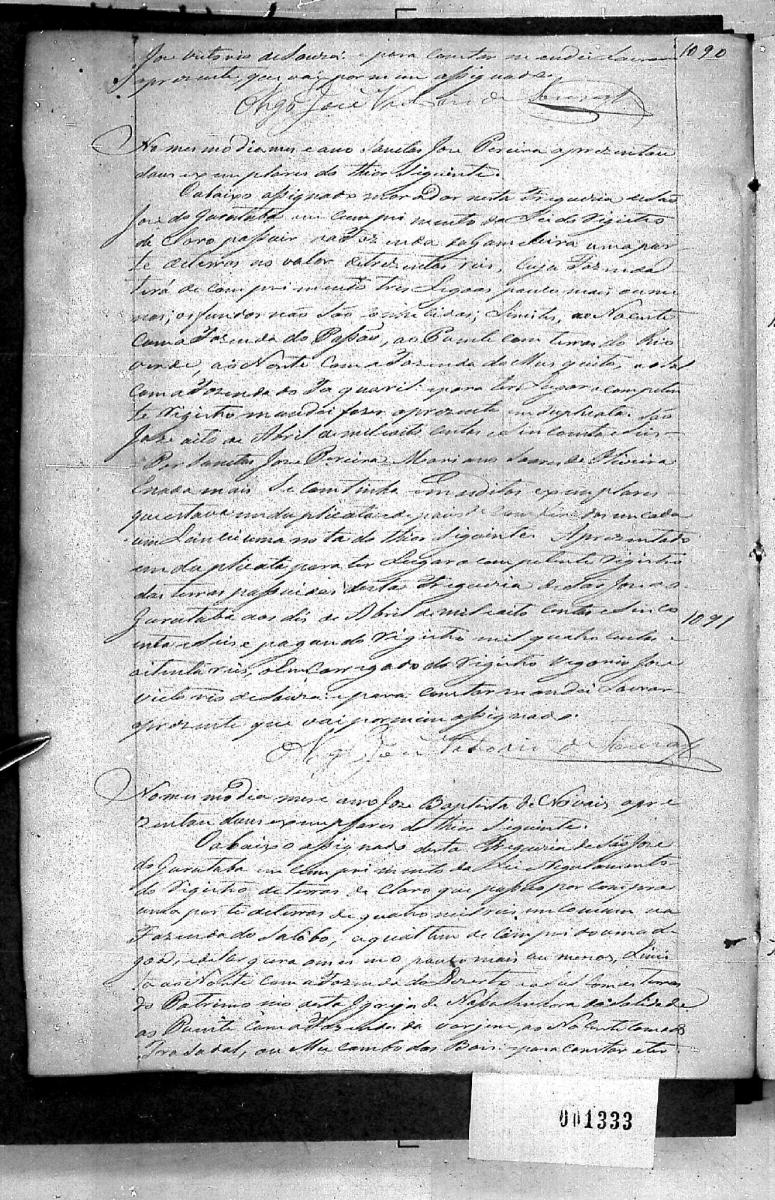 José Victorio de Souza: e para constar mandei Lavrar 1090
o prezente, que vai por mim assignado.
Vigº José Victorio de Souza
No mesmo dia mes e anno Santos Jose Pereira aprezentou
dous exemplares do thior Siguinte.
O abaixo assignado morador nesta Freguezia de São
José do Gurutuba em cumprimento da Lei do Rigistro
de Claro passuir na Fazenda da gamelleira uma par
te de terras no valor de trezentos reis, Cuja Fazenda
terá de comprimento tres Legoas, pouco mais ou me
nos; os fundos não São conhecidos; Limites, ao Nacente
com a Fazenda do Passão, ao Puente com terras do Rio
verde, ao Norte Com a Fazenda do Musquito, e o Sul
Com a Fazenda do Taquaril: e para ter Lugar o competen
te Rigistro mandei fazer o prezente em duplicata. São
José oito de Abril de mil oito centos e Sincoenta e Seis
Por Santos José Pereira Mariano Soares de Oliveira
E nada mais Se continha em os ditos exemplares
que estava em duplicata e depois de com em cada
um Lancei uma nota do thior Siguinte. Aprezentado
em duplicata para ter Lugar o competente Rigistro
das terras passuidas desta Freguezia de São José do
Gurutuba aos dis de Abril de mil oito centos e Sinco 1091
enta e Seis e pagou do Rigistro mil quatro centos e
oitenta reis, o Emcarregado do Rigistro Vegario José
Victorio de Souza: e para constar mandei Lavrar
o prezente que vai por mim assignado.
Vigº José Victorio de Souza
No mesmo dia mes e anno José Baptista de Novais apre
zentou dous exemplares do thior Siguinte.
O abaixo assignado desta Freguezia de São José
do Gurutuba em comprimento da Lei e Regulamento
do Rigistro de terras de Claro que passuo por compra
uma parte de terras de quatro mil reis em comum na
Fazenda do Salôbo, a qual tem de comprido uma Le
goa, e de largura o mesmo pouco mais ou menos, Limi
ta ao Norte com a Fazenda do Dezerto e ao Sul Com as terras
do Patrimonio desta Igreja de Nossa Senhora da Solidade
ao Puente Com a Fazenda da varjem, ao Nacente Com a do
ou Mucambo dos Bois: e para constar e ter
001333